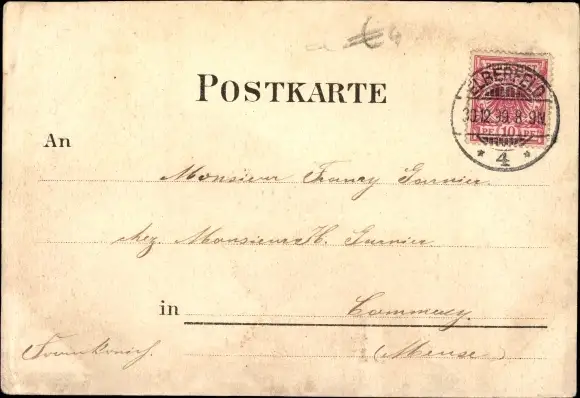 POSTKARTE
ELBERFELD
30.12.99. 8-9N
PF. 10 PF.
4
An
Monsieur Garnier
chez Monsieur H. Garnier
in Commercy
(Meuse)
Frankreich.